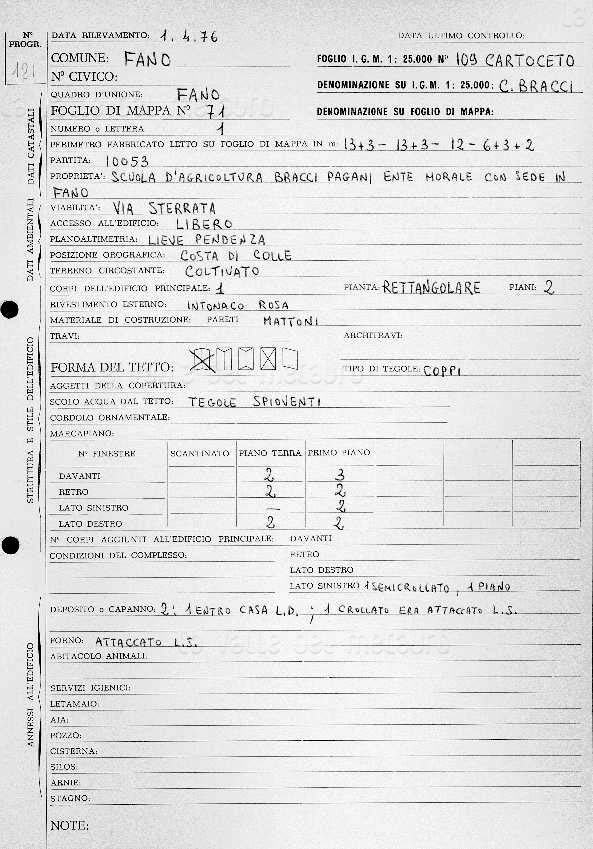 Nº PROGR.
121
DATA RILEVAMENTO: 1.4.76 DATA ULTIMO CONTROLLO:
COMUNE: FANO FOGLIO I.G.M. 1: 25.000 Nº 109 CARTOCETO
Nº CIVICO: DENOMINAZIONE SU I.G.M. 1: 25.000: C. BRACCI
QUADRO D'UNIONE: FANO
FOGLIO DI MAPPA Nº 71 DENOMINAZIONE SU FOGLIO DI MAPPA:
NUMERO o LETTERA 1
PERIMETRO FABBRICATO LETTO SU FOGLIO DI MAPPA IN m: 13+3 - 13+3 - 12 - 6+3+2
PARTITA: 10053
PROPRIETA': SCUOLA D'AGRICOLTURA BRACCI PAGANI ENTE MORALE CON SEDE IN
FANO
VIABILITA': VIA STERRATA
ACCESSO ALL'EDIFICIO: LIBERO
PLANOALTIMETRIA: LIEVE PENDENZA
POSIZIONE OROGRAFICA: COSTA DI COLLE
TERRENO CIRCOSTANTE: COLTIVATO
CORPI DELL'EDIFICIO PRINCIPALE: 1 PIANTA: RETTANGOLARE PIANI: 2
RIVESTIMENTO ESTERNO: INTONACO ROSA
MATERIALE DI COSTRUZIONE: PARETI MATTONI
TRAVI: ARCHITRAVI:
FORMA DEL TETTO: TIPO DI TEGOLE: COPPI
AGGETTI DELLA COPERTURA:
SCOLO ACQUA DAL TETTO: TEGOLE SPIOVENTI
CORDOLO ORNAMENTALE:
MARCAPIANO:
Nº FINESTRE SCANTINATO PIANO TERRA PRIMO PIANO
DAVANTI 2 3
RETRO 2 2
LATO SINISTRO — 2
LATO DESTRO 2 2
Nº CORPI AGGIUNTI ALL'EDIFICIO PRINCIPALE: DAVANTI
CONDIZIONI DEL COMPLESSO: RETRO
LATO DESTRO
LATO SINISTRO 1 SEMICROLLATO, 1 PIANO
DEPOSITO o CAPANNO: 2: 1 ENTRO CASA L.D. ; 1 CROLLATO ERA ATTACCATO L.S.
FORNO: ATTACCATO L.S.
ABITACOLO ANIMALI:
SERVIZI IGIENICI:
LETAMAIO:
AIA:
POZZO:
CISTERNA:
SILOS:
ARNIE:
STAGNO:
NOTE:
DATI CATASTALI
DATI AMBIENTALI
STRUTTURA E STILE DELL'EDIFICIO
ANNESSI ALL'EDIFICIO